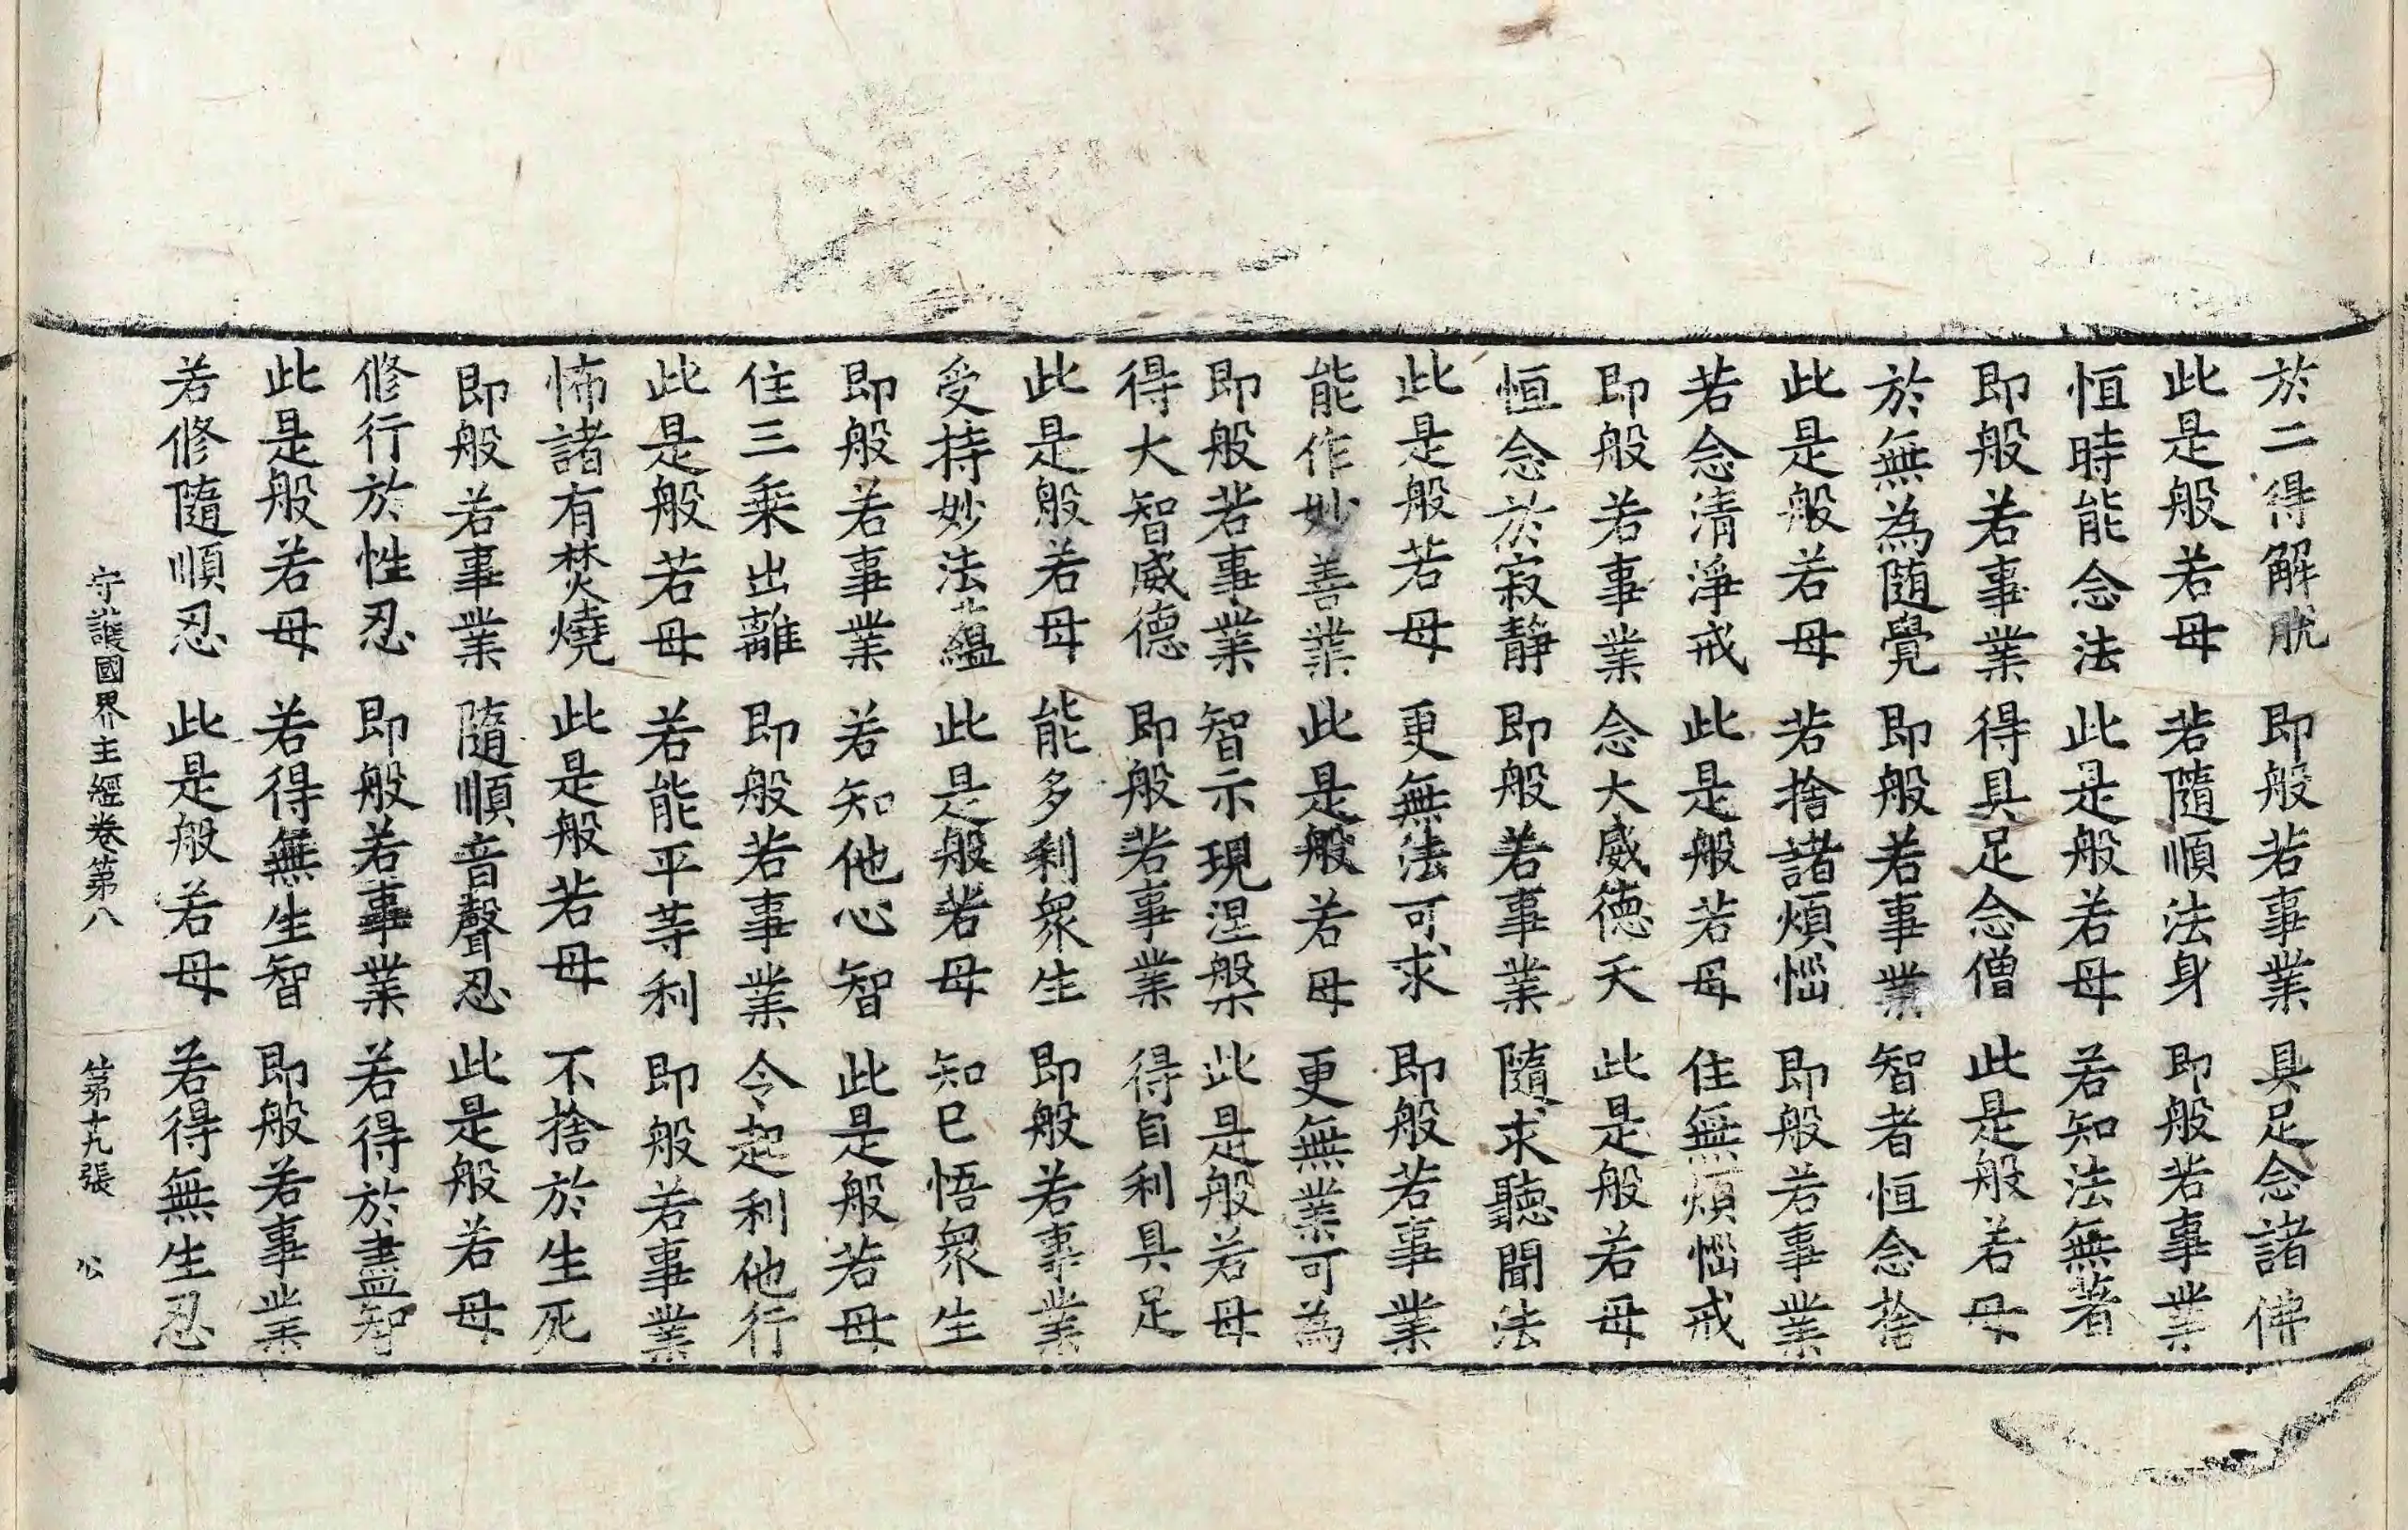 於二得解脫　即般若事業　具足念諸佛
此是般若母　若隨順法身　即般若事業
恒時能念法　此是般若母　若知法無著
即般若事業　得具足念僧　此是般若母
於無為随覺　即般若事業　智者恒念捨
此是般若母　若捨諸煩惱　即般若事業
若念清淨戒　此是般若母　住無煩惱戒
即般若事業　念大威德天　此是般若母
恒念於寂靜　即般若事業　隨求聽聞法
此是般若母　更無法可求　即般若事業
能作妙善業　此是般若母　更無業可為
即般若事業　智示現涅槃　此是般若母
得大智威德　即般若事業　得自利具足
此是般若母　能多利衆生　即般若事業
受持妙法蘊　此是般若母　知已悟衆生
即般若事業　若知他心智　此是般若母
住三乘出離　即般若事業　令起利他行
此是般若母　若能平等利　即般若事業
怖諸有焚燒　此是般若母　不捨於生死
即般若事業　隨順音聲忍　此是般若母
修行於性忍　即般若事業　若得於盡智
此是般若母　若得無生智　即般若事業
若修隨順忍　此是般若母　若得無生忍
守護國界主經卷第八　第十九張　公